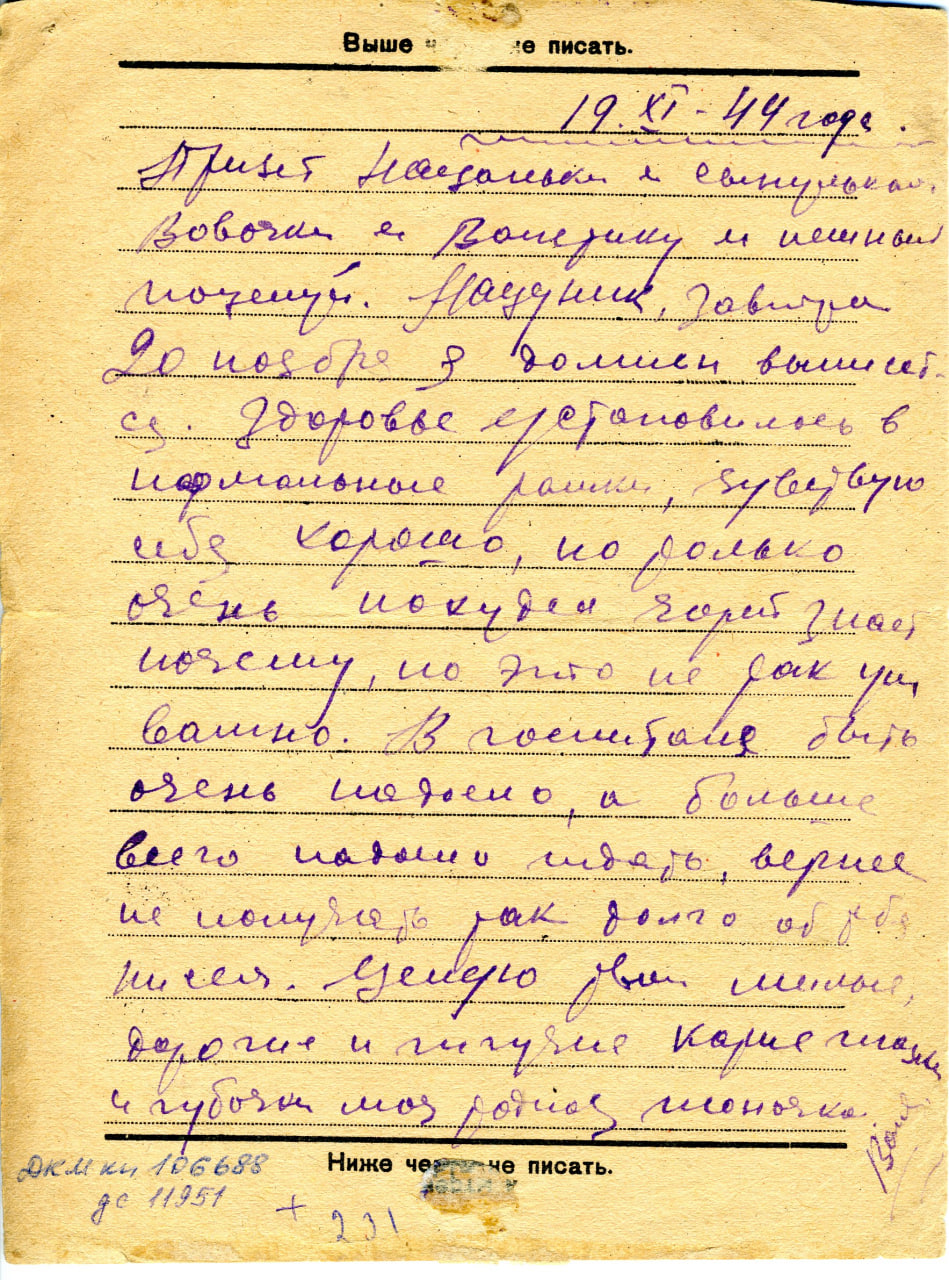 Выше че не писать.
19. XI - 44 года.
Привет Наданьки и сынулькам
Вовочки и Валерику и нежный
поцелуй. Надуник, завтра
20 ноября я должен выписат-
ся. Здоровье установилось в
нормальные рамки, чувствую
себя хорошо, но только
очень похудел чорт знает
почему, но это не так уж
важно. В госпитале быть
очень надоело, а больше
всего надоело ждать, вернее
не получать так долго от тебя
писем. Целую твои милые,
дорогие и жгучие карие глазки
и губочки моя родная жоночка.
Ваня
Ниже че не писать.
ДКМ кп 106688
дс 11951
+ 231